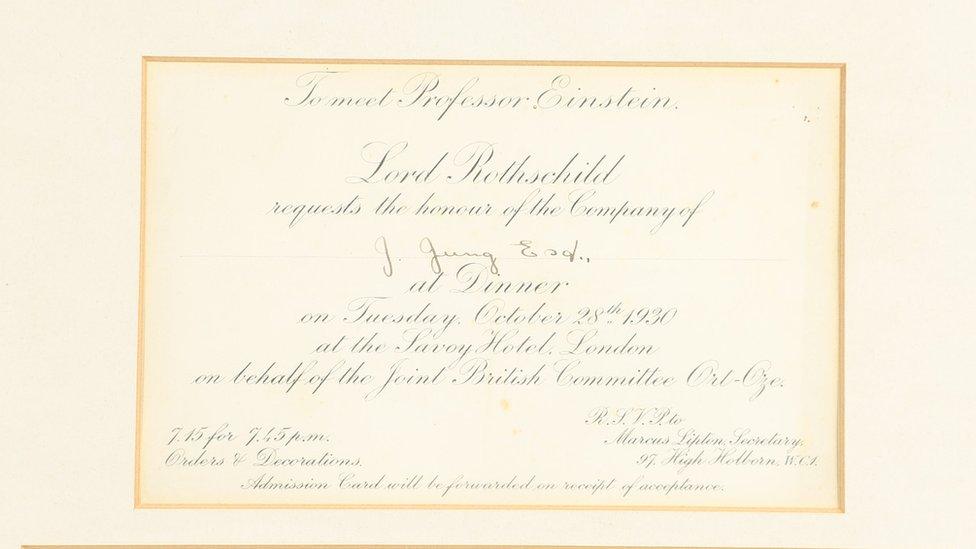 To meet Professor Einstein.
Lord Rothschild
requests the honour of the Company of
J. Jung Esq.,
at Dinner
on Tuesday, October 28th 1930
at the Savoy Hotel, London
on behalf of the Joint British Committee Ort-Oze.
7.15 for 7.45 p.m.
Orders & Decorations.
R.S.V.P. to
Marcus Lipton, Secretary,
97, High Holborn, W.C.1.
Admission Card will be forwarded on receipt of acceptance.